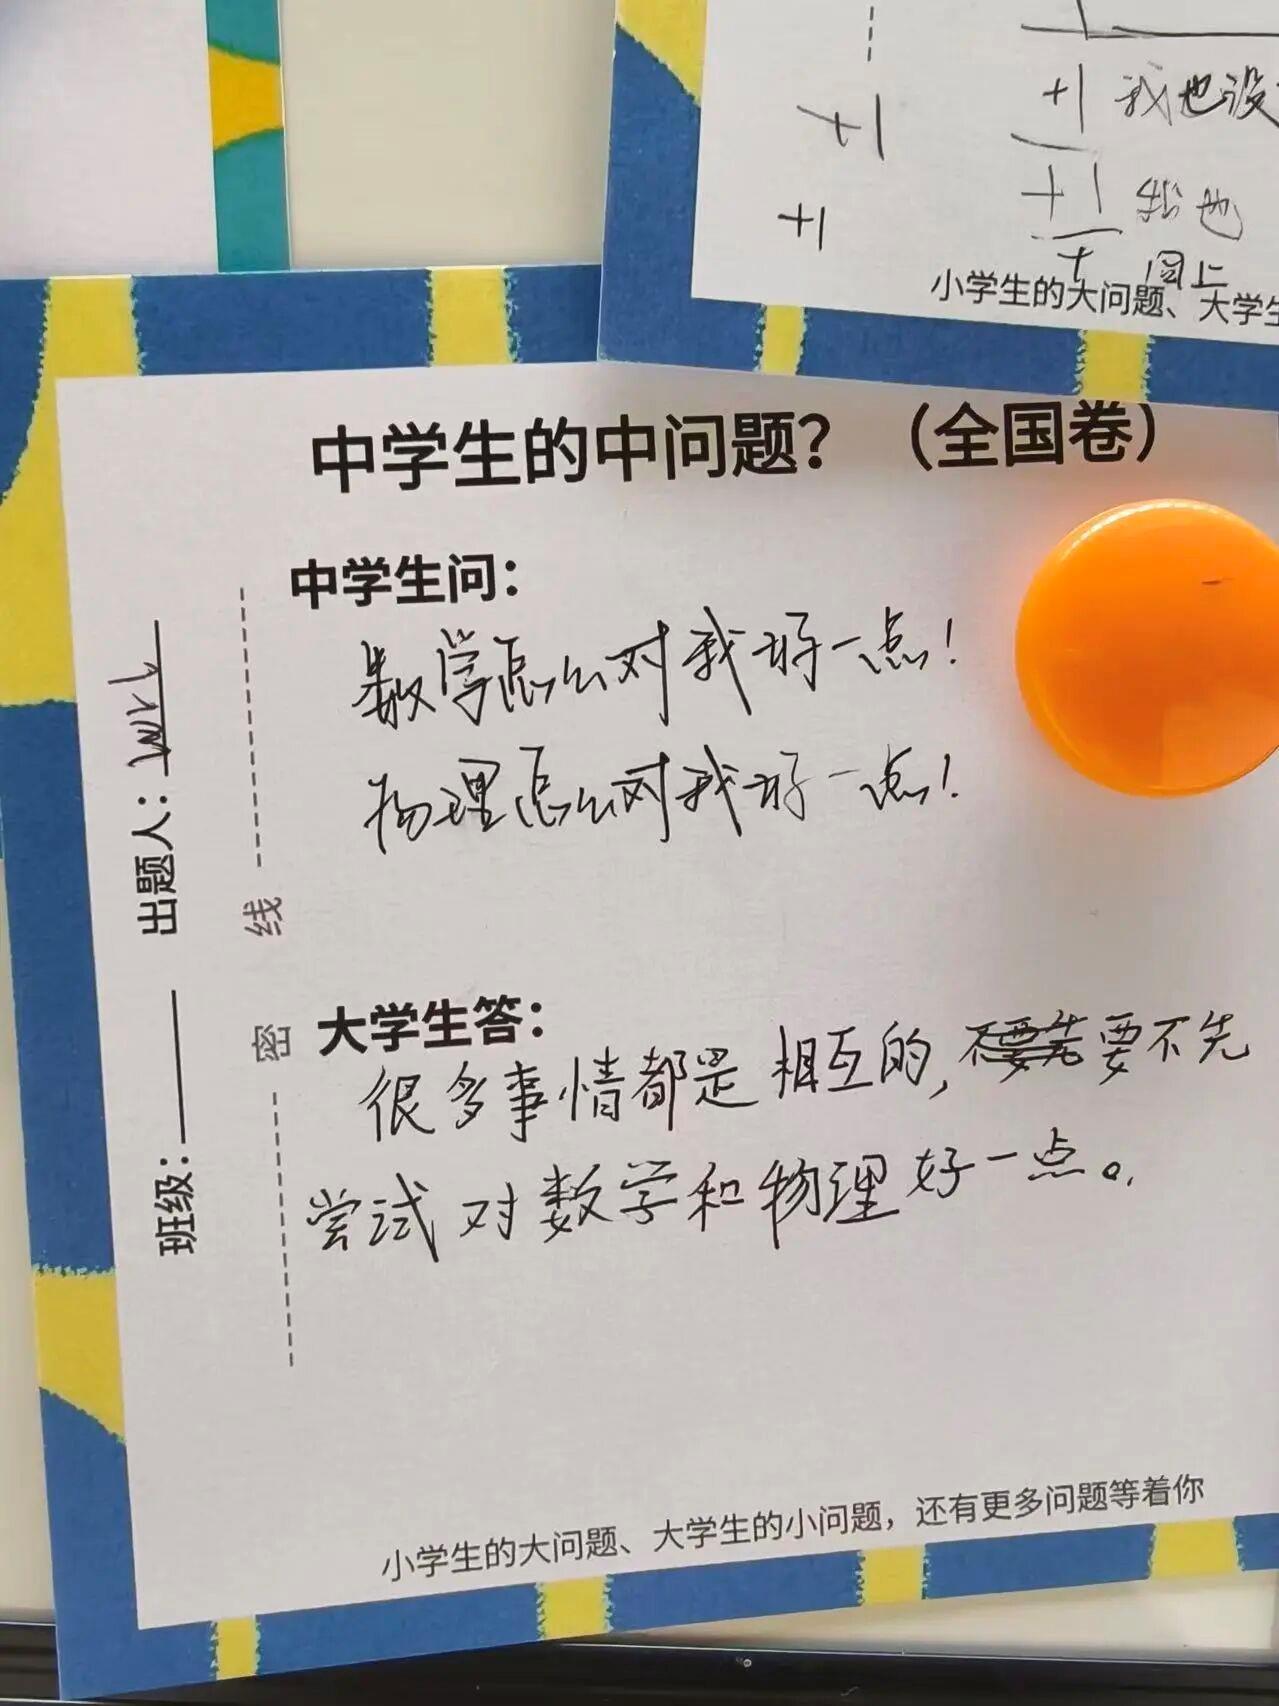 +1 我也没
+1
+1 我也
+1
+ 同上
小学生的大问题、大学生
中学生的中问题？（全国卷）
中学生问：
数学怎么对我好一点！
物理怎么对我好一点！
出题人：
线
密
班级：
大学生答：
很多事情都是相互的，不要先要不先
尝试对数学和物理好一点。
小学生的大问题、大学生的小问题，还有更多问题等着你